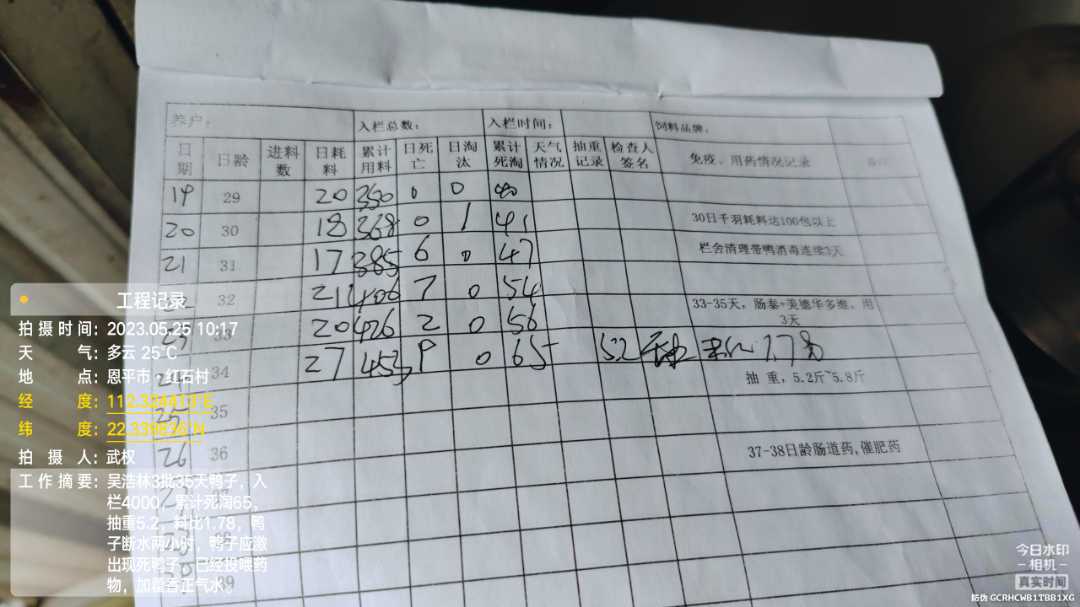 养户： 入栏总数： 入栏时间： 饲料品牌：
日期 日龄 进料数 日耗料 累计用料 日死亡 日淘汰 累计死淘 天气情况 抽重记录 检查人签名 免疫、用药情况记录 备注
19 29 20 350 0 0 40
20 30 18 368 0 1 41 30日千羽耗料达100包以上
21 31 17 385 6 0 47 栏舍清理带鸭消毒连续3天
32 21 406 7 0 54 33-35天，肠泰+美德华多维，用3天
23 33 20 426 2 0 56
34 27 453 9 0 65 5.2
抽 重，5.2斤~5.8斤
25 35
26 36 37-38日龄肠道药，催肥药
39
工程记录
拍摄时间：2023.05.25 10:17
天 气：多云 25℃
地 点：恩平市·红石村
经 度：112.324413°E
纬 度：22.339836°N
拍 摄 人：武权
工作摘要：吴浩林3批35天鸭子，入
栏4000，累计死淘65，
抽重5.2，料比1.78，鸭
子断水两小时，鸭子应激
出现死鸭子，已经投喂药
物，加藿香正气水。
今日水印
相机
真实时间
防伪 GCRHCWB1TBB1XG